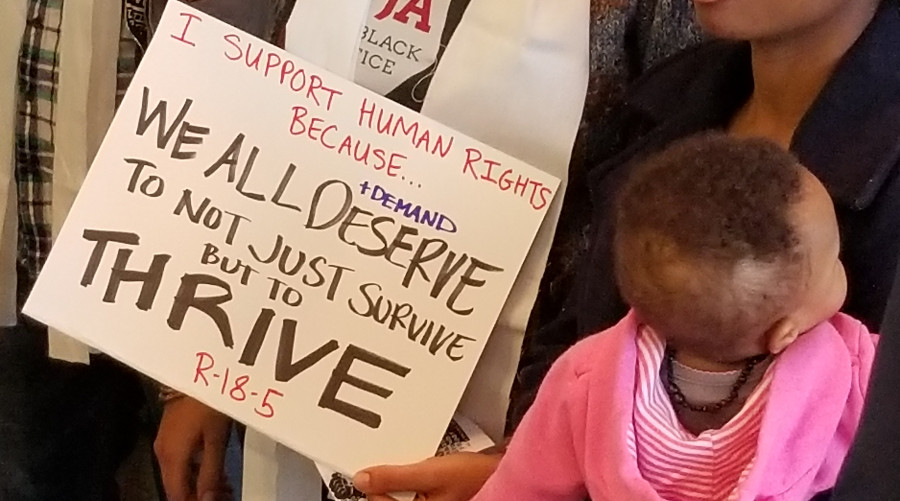 JA
BLACK
I SUPPORT HUMAN RIGHTS
BECAUSE...
WE ALL DESERVE
+DEMAND
TO NOT JUST SURVIVE
BUT TO
THRIVE
R-18-5